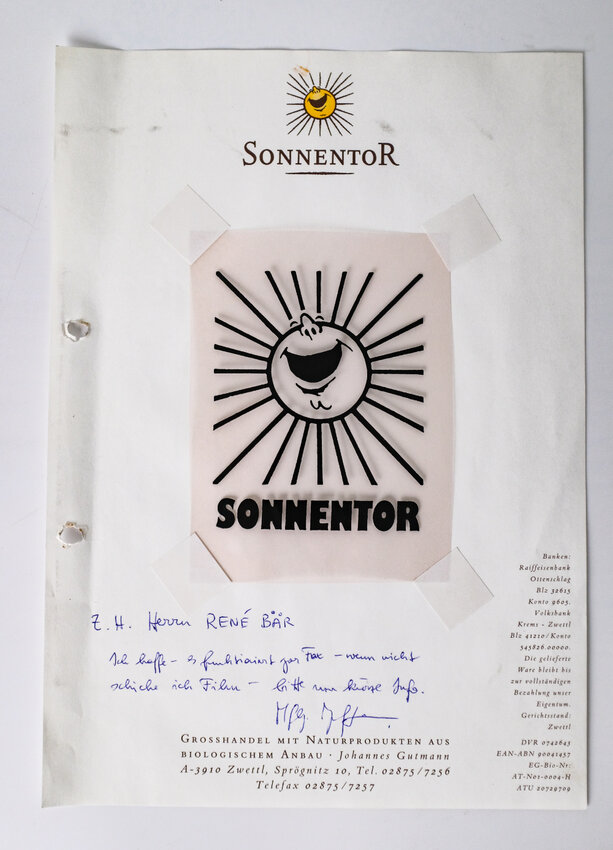 SONNENTOR
SONNENTOR
Z. H. Herrn RENÉ BÄR
Ich hoffe - es funktioniert per Fax - wenn nicht
schicke ich Film - bitte um kurze Info.
GROSSHANDEL MIT NATURPRODUKTEN AUS
BIOLOGISCHEM ANBAU · Johannes Gutmann
A-3910 Zwettl, Sprögnitz 10, Tel. 02875/7256
Telefax 02875/7257
Banken:
Raiffeisenbank
Ottenschlag
Blz 32615
Konto 9605.
Volksbank
Krems - Zwettl
Blz 41210/Konto
345826.00000.
Die gelieferte
Ware bleibt bis
zur vollständigen
Bezahlung unser
Eigentum.
Gerichtsstand:
Zwettl
DVR 0742643
EAN-ABN 90041457
EG-Bio-Nr:
AT-N01-0004-H
ATU 20729709